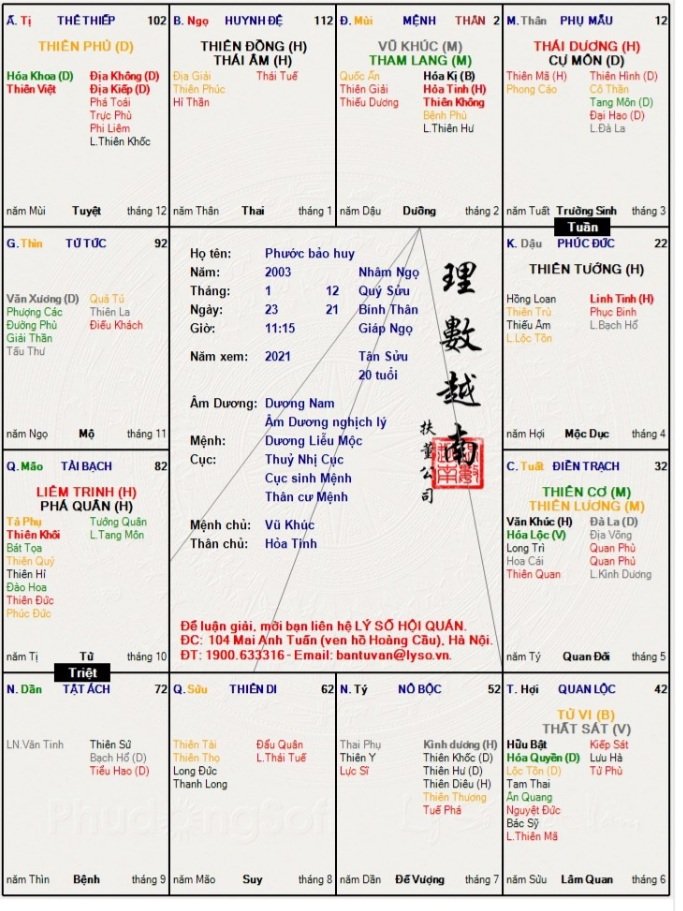 Ấ. Tị THÊ THIẾP 102
THIÊN PHỦ (D)
Hóa Khoa (D) Địa Không (D)
Thiên Việt Địa Kiếp (D)
Phá Toái
Trực Phù
Phi Liêm
L.Thiên Khốc
năm Mùi Tuyệt tháng 12
B. Ngọ HUYNH ĐỆ 112
THIÊN ĐỒNG (H)
THÁI ÂM (H)
Địa Giải Thái Tuế
Thiên Phúc
Hỉ Thần
năm Thân Thai tháng 1
Đ. Mùi MỆNH THÂN 2
VŨ KHÚC (M)
THAM LANG (M)
Quốc Ấn Hóa Kị (B)
Thiên Giải Hỏa Tinh (H)
Thiếu Dương Thiên Không
Bệnh Phù
L.Thiên Hư
năm Dậu Dưỡng tháng 2
M. Thân PHỤ MẪU 12
THÁI DƯƠNG (H)
CỰ MÔN (D)
Thiên Mã (H) Thiên Hình (D)
Phong Cáo Cô Thần
Tang Môn (D)
Đại Hao (D)
L.Đà La
năm Tuất Trường Sinh tháng 3
Tuần
G. Thìn TỬ TỨC 92
Văn Xương (D) Quả Tú
Phượng Các Thiên La
Đường Phù Điếu Khách
Giải Thần
Tấu Thư
năm Ngọ Mộ tháng 11
Họ tên: Phước bảo huy
Năm: 2003 Nhâm Ngọ
Tháng: 1 12 Quý Sửu
Ngày: 23 21 Bính Thân
Giờ: 11:15 Giáp Ngọ
Năm xem: 2021 Tân Sửu
20 tuổi
Âm Dương: Dương Nam
Âm Dương nghịch lý
Mệnh: Dương Liễu Mộc
Cục: Thuỷ Nhị Cục
Cục sinh Mệnh
Thân cư Mệnh
Mệnh chủ: Vũ Khúc
Thân chủ: Hỏa Tinh
理數越南
扶董公司
Để luận giải, mời bạn liên hệ LÝ SỐ HỘI QUÁN.
ĐC: 104 Mai Anh Tuấn (ven hồ Hoàng Cầu), Hà Nội.
ĐT: 1900.633316 - Email: bantuvan@lyso.vn.
K. Dậu PHÚC ĐỨC 22
THIÊN TƯỚNG (H)
Hồng Loan Linh Tinh (H)
Thiên Trù Phục Binh
Thiếu Âm L.Bạch Hổ
L.Lộc Tồn
năm Hợi Mộc Dục tháng 4
Q. Mão TÀI BẠCH 82
LIÊM TRINH (H)
PHÁ QUÂN (H)
Tả Phụ Tướng Quân
Thiên Khôi L.Tang Môn
Bát Tọa
Thiên Quý
Thiên Hỉ
Đào Hoa
Thiên Đức
Phúc Đức
năm Tị Tử tháng 10
C. Tuất ĐIỀN TRẠCH 32
THIÊN CƠ (M)
THIÊN LƯƠNG (M)
Văn Khúc (H) Đà La (D)
Hóa Lộc (V) Địa Võng
Long Trì Quan Phù
Hoa Cái Quan Phủ
Thiên Quan L.Kình Dương
năm Tý Quan Đới tháng 5
Triệt
N. Dần TẬT ÁCH 72
LN.Văn Tinh Thiên Sứ
Bạch Hổ (D)
Tiểu Hao (D)
năm Thìn Bệnh tháng 9
Q. Sửu THIÊN DI 62
Thiên Tài Đẩu Quân
Thiên Thọ L.Thái Tuế
Long Đức
Thanh Long
năm Mão Suy tháng 8
N. Tý NÔ BỘC 52
Thai Phụ Kình dương (H)
Thiên Y Thiên Khốc (D)
Lực Sĩ Thiên Hư (D)
Thiên Diêu (H)
Thiên Thương
Tuế Phá
năm Dần Đế Vượng tháng 7
T. Hợi QUAN LỘC 42
TỬ VI (B)
THẤT SÁT (V)
Hữu Bật Kiếp Sát
Hóa Quyền (D) Lưu Hà
Lộc Tồn (D) Tử Phù
Tam Thai
Ân Quang
Nguyệt Đức
Bác Sỹ
L.Thiên Mã
năm Sửu Lâm Quan tháng 6